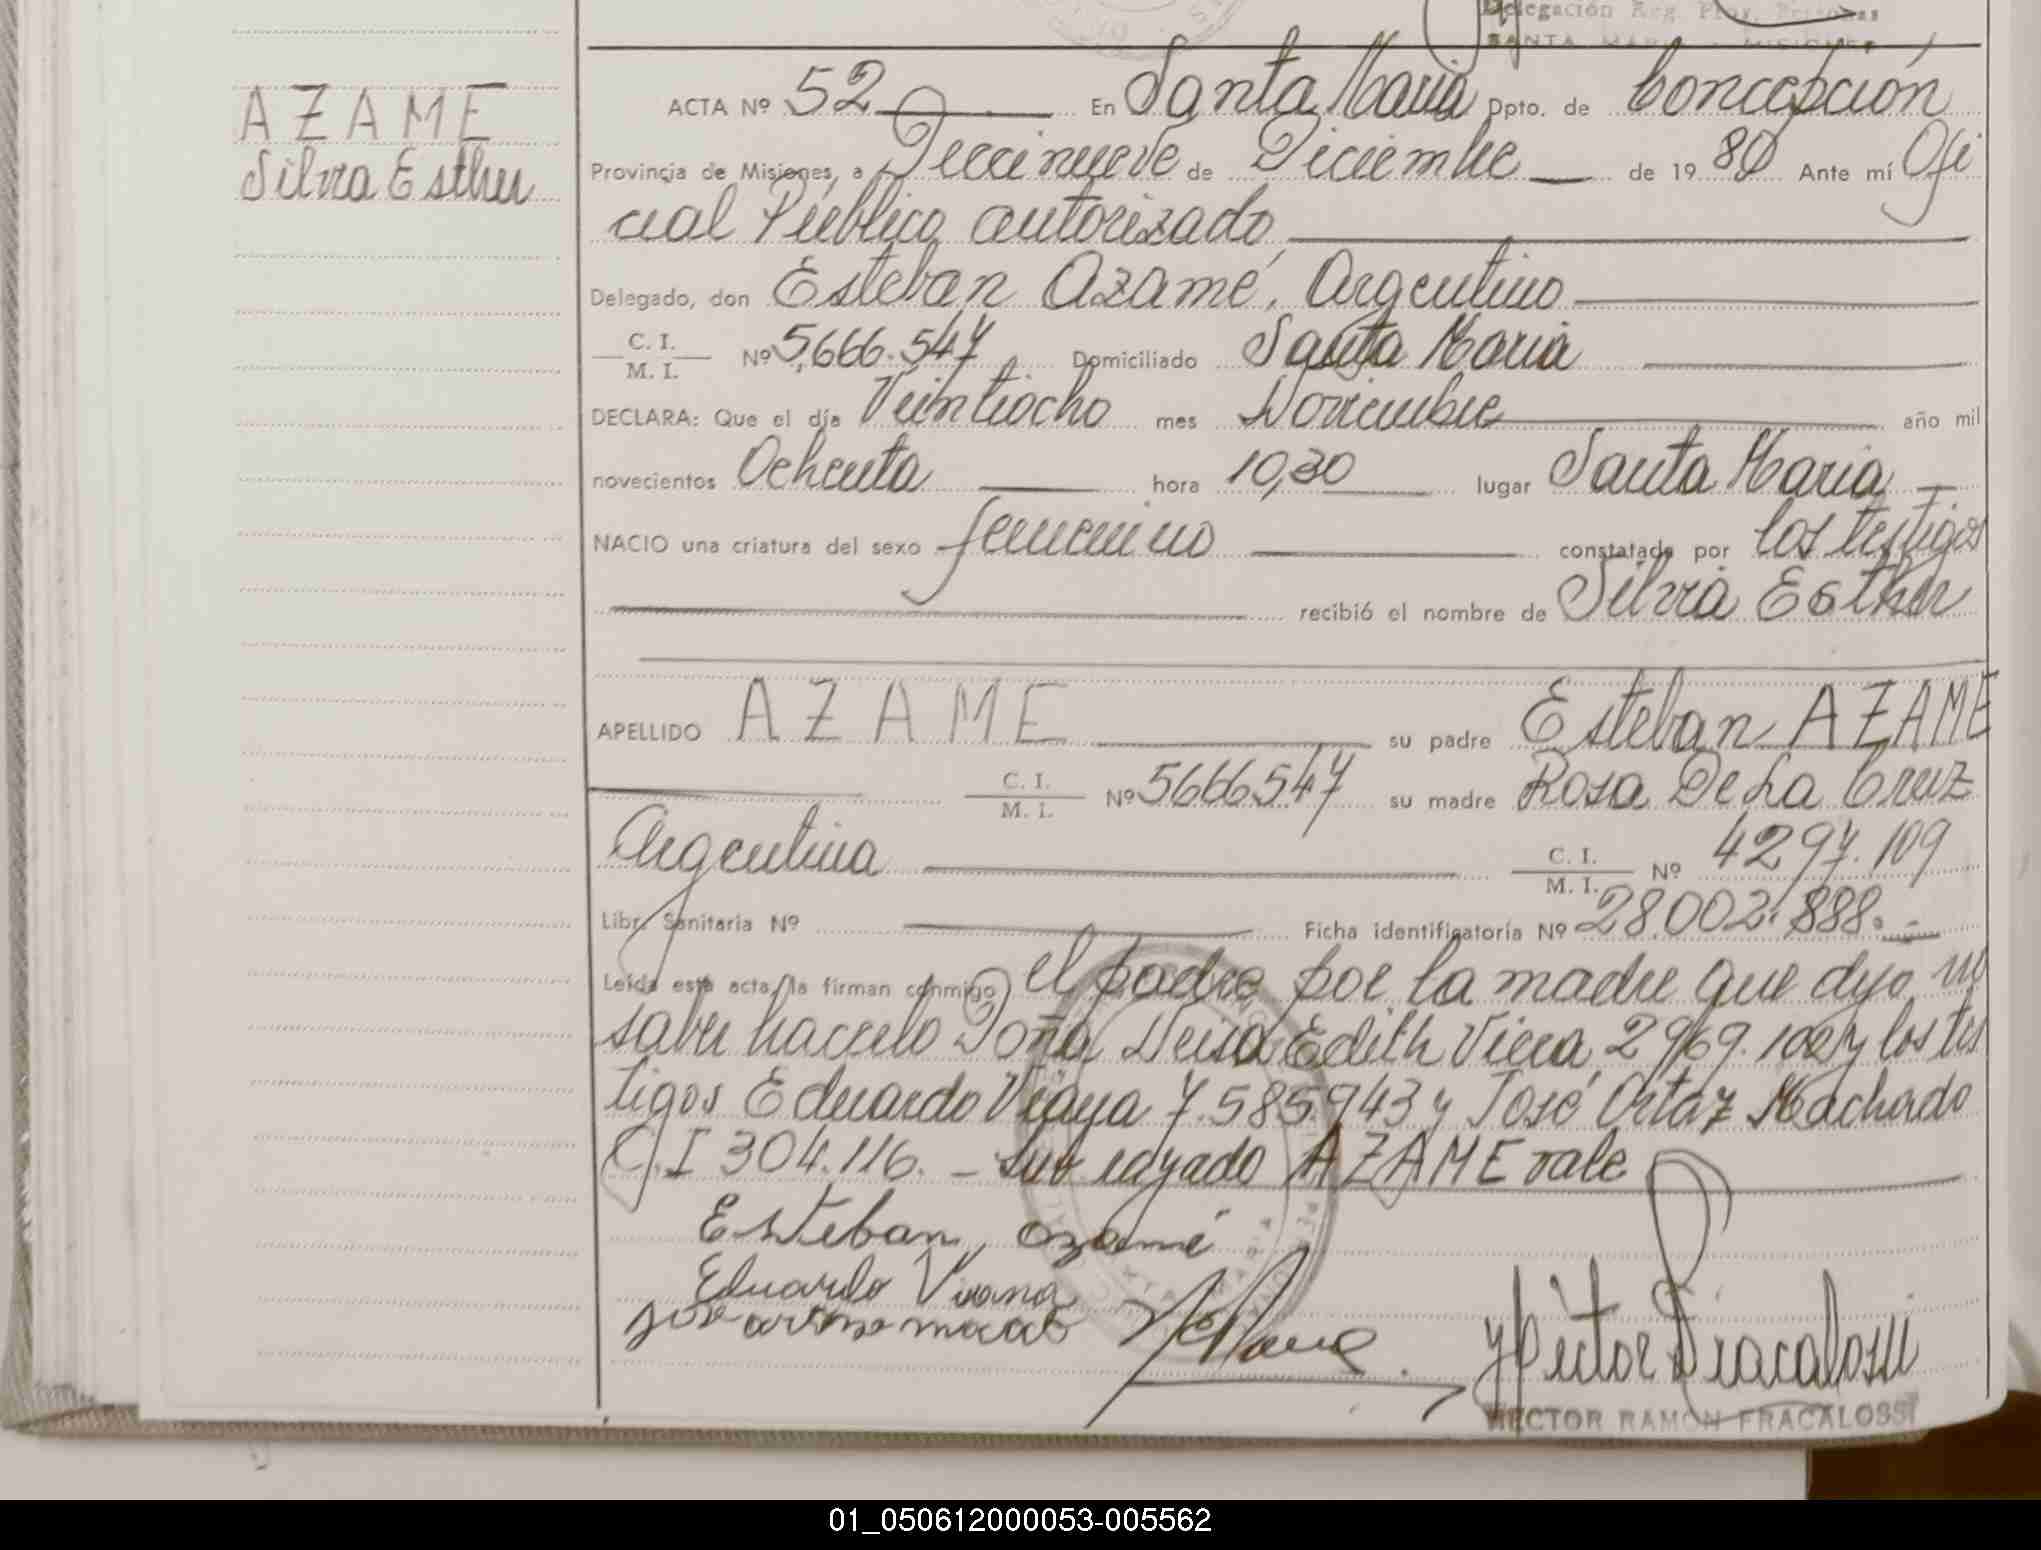 Delegación Reg. Prov. Personas
SANTA MARIA - MISIONES
AZAME
Silvia Esther
ACTA Nº 52 En Santa Maria Dpto. de Concepción
Provincia de Misiones, a Diecinueve de Diciembre de 19 80 Ante mí Ofi
cial Público autorizado
Delegado, don Esteban Azamé, Argentino
C. I.
M. I.
Nº 5,666.547 Domiciliado Santa Maria
DECLARA: Que el día Veintiocho mes Noviembre año mil
novecientos Ochenta hora 10,30 lugar Santa Maria
NACIO una criatura del sexo femenino constatada por los testigos
recibió el nombre de Silvia Esther
APELLIDO AZAME su padre Esteban AZAME
C. I.
M. I.
Nº 5666547 su madre Rosa De La Cruz
Argentina
C. I.
M. I.
Nº 4297.109
Libr. Sanitaria Nº Ficha identificatoria Nº 28.002.888.-
Leída esta acta, la firman conmigo el padre por la madre que dijo no
saber hacerlo Doña Neisa Edith Viera 2969.102 y los tes
tigos Eduardo Viana 7.585943 y José Ortaz Machado
C.I 304.116. - Sub rayado AZAME vale
Esteban, azamé
Eduardo Viana
Hector Fracalossi
HECTOR RAMON FRACALOSSI
01_050612000053-005562